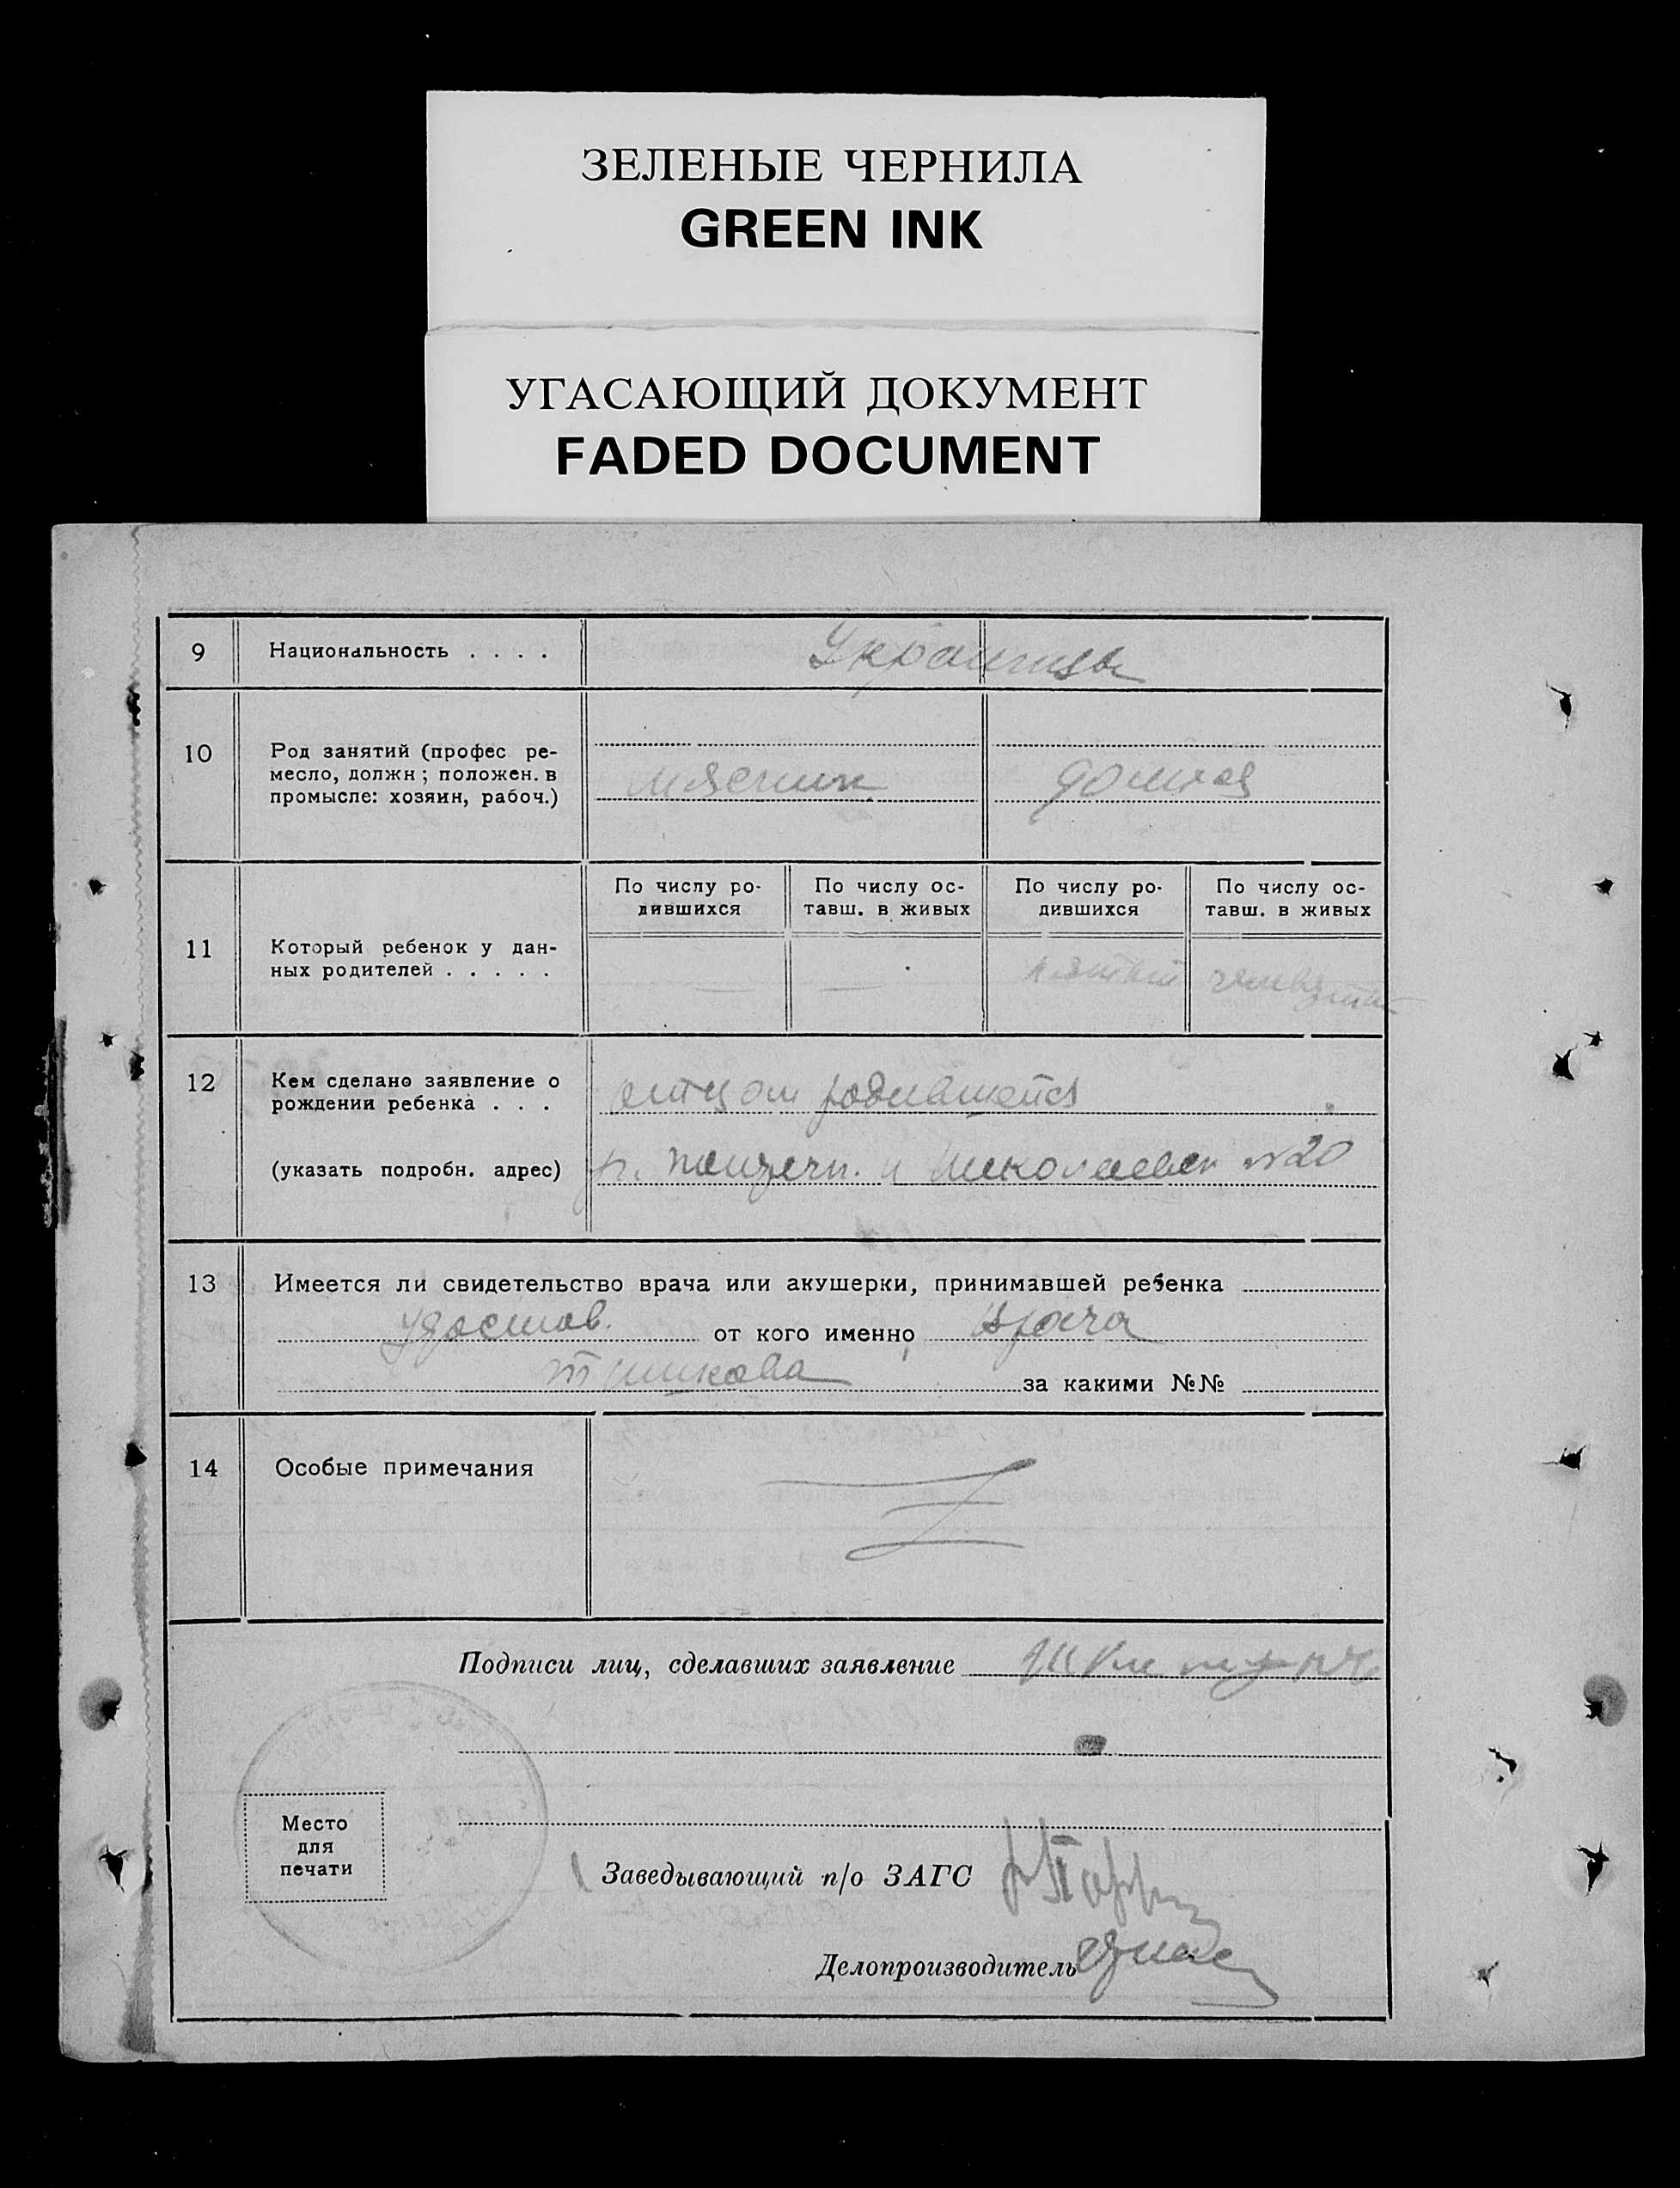 ЗЕЛЕНЫЕ ЧЕРНИЛА
GREEN INK
УГАСАЮЩИЙ ДОКУМЕНТ
FADED DOCUMENT
9 Национальность . . . . Украинцы
10 Род занятий (профес ре-
месло, должн; положен. в
промысле: хозяин, рабоч.)
мясник домаш
По числу ро-
дившихся
По числу ос-
тавш. в живых
По числу ро-
дившихся
По числу ос-
тавш. в живых
11 Который ребенок у дан-
ных родителей . . . . .
— — пятый
12 Кем сделано заявление о
рождении ребенка . . .
отцом
(указать подробн. адрес)
и Николаевск №20
13 Имеется ли свидетельство врача или акушерки, принимавшей ребенка
удостов. от кого именно врача
за какими №№
14 Особые примечания
Подписи лиц, сделавших заявление
Место
для
печати
Заведывающий п/о ЗАГС
Делопроизводитель